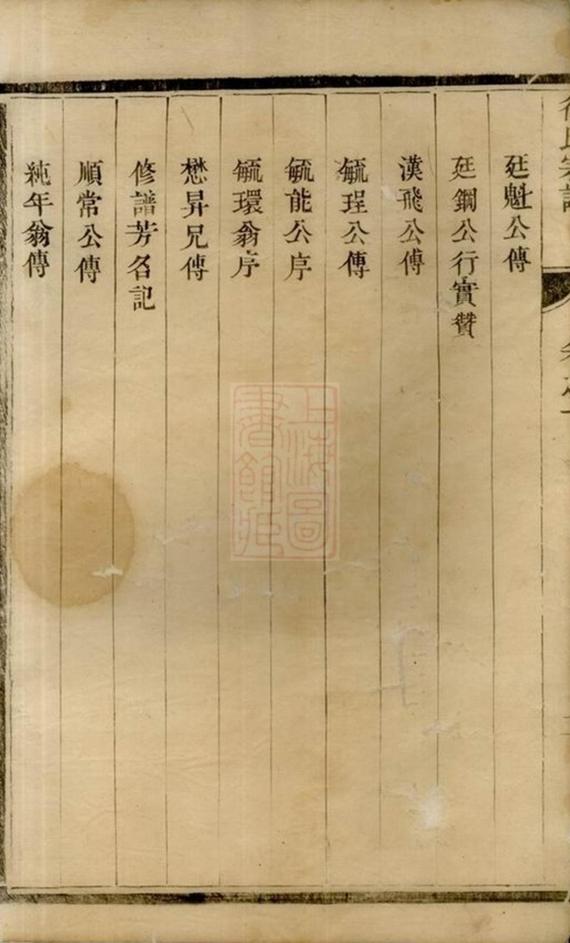 廷魁公傳
廷鋼公行實贊
漢飛公傅
毓珵公傳
毓能公序
毓環翁序
懋昇兄傳
修譜芳名記
順常公傳
純年翁傳
上海圖書館